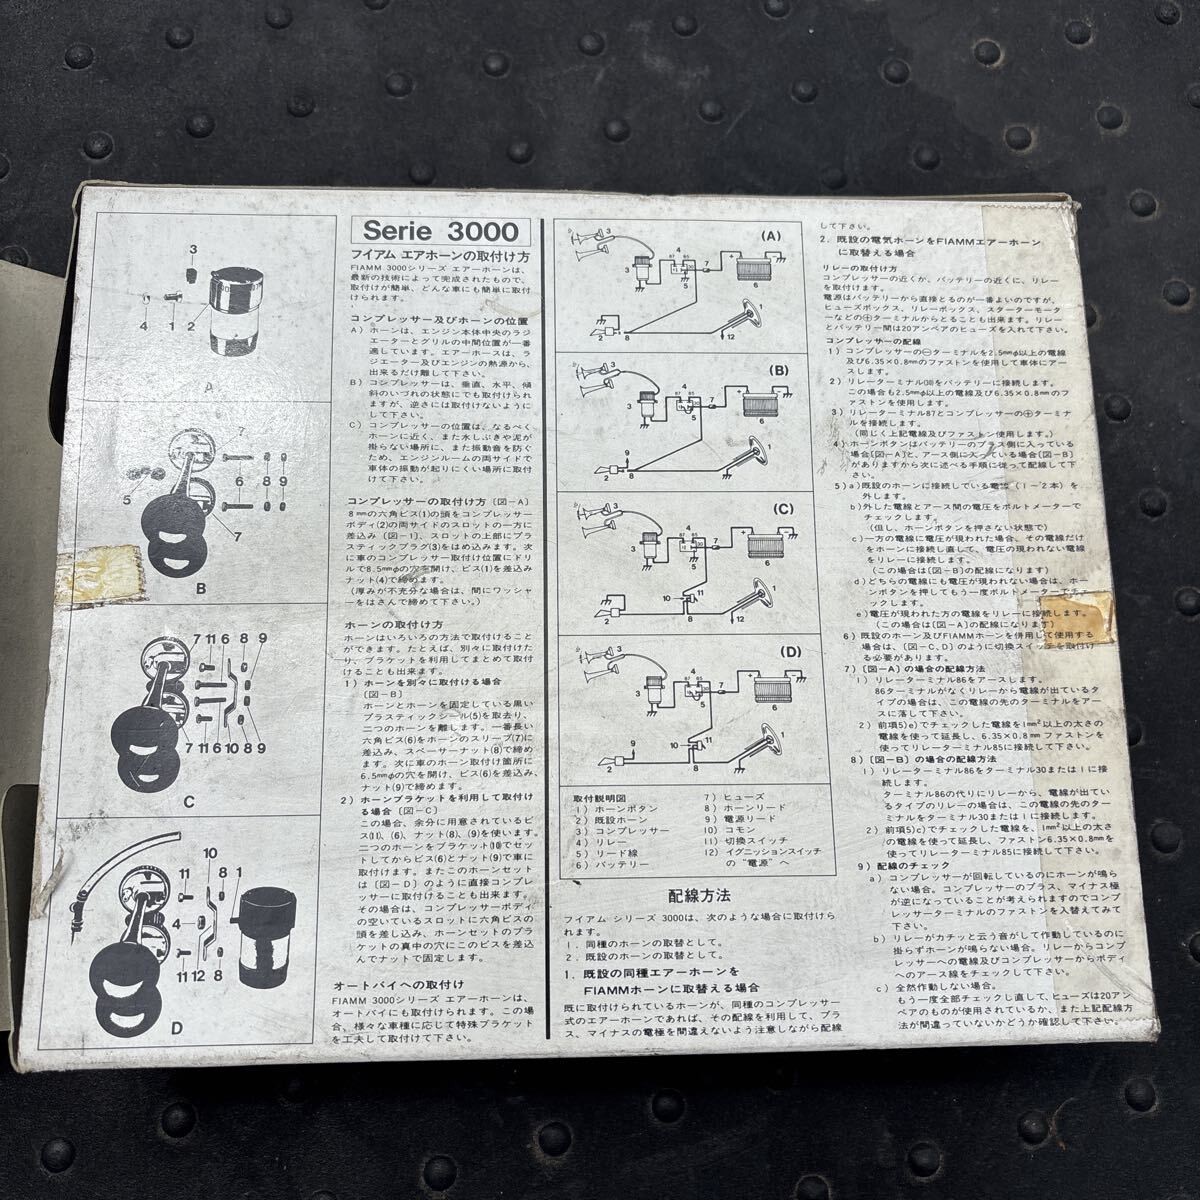 Serie 3000
フイアム エアホーンの取付け方
FIAMM 3000シリーズ エアーホーンは、
最新の技術によって完成されたもので、
取付けが簡単、どんな車にも簡単に取付
けられます。
コンプレッサー及びホーンの位置
A) ホーンは、エンジン本体中央のラジ
エーターとグリルの中間位置が一番
適しています。エアーホースは、ラ
ジエーター及びエンジンの熱源から、
出来るだけ離して下さい。
B) コンプレッサーは、垂直、水平、傾
斜のいづれの状態にでも取付けられ
ますが、逆さには取付けないように
して下さい。
C) コンプレッサーの位置は、なるべく
ホーンに近く、また水しぶきや泥が
掛らない場所に、また振動音を防ぐ
ため、エンジンルームの両サイドで
車体の振動が起りにくい場所に取付
けて下さい。
コンプレッサーの取付け方〔図-A〕
8mmの六角ビス(1)の頭をコンプレッサー
ボディ(2)の両サイドのスロットの一方に
差込み〔図-1〕、スロットの上部にプラ
スティックプラグ(3)をはめ込みます。次
に車のコンプレッサー取付け位置にドリ
ルで8.5mmφの穴を開け、ビス(1)を差込み
ナット(4)で締めます。
(厚みが不充分な場合は、間にワッシャ
ーをはさんで締めて下さい。)
ホーンの取付け方
ホーンはいろいろの方法で取付けること
ができます。たとえば、別々に取付けた
り、ブラケットを利用してまとめて取付
けることも出来ます。
1) ホーンを別々に取付ける場合
〔図-B〕
ホーンとホーンを固定している黒い
プラスティックシール(5)を取去り、
二つのホーンを離します。一番長い
六角ビス(6)をホーンのスリーブ(7)に
差込み、スペーサーナット(8)で締め
ます。次に車のホーン取付け箇所に
6.5mmφの穴を開け、ビス(6)を差込み、
ナット(9)で締めます。
2) ホーンブラケットを利用して取付け
る場合〔図-C〕
この場合、余分に用意されているビ
ス(11)、(6)、ナット(8)、(9)を使います。
二つのホーンをブラケット(10)でセッ
トしてからビス(6)とナット(9)で車に
取付けます。またこのホーンセット
は〔図-D〕のように直接コンプレ
ッサーに取付けることも出来ます。
その場合は、コンプレッサーボディ
の空いているスロットに六角ビスの
頭を差し込み、ホーンセットのブラ
ケットの真中の穴にこのビスを差込
んでナットで固定します。
オートバイへの取付け
FIAMM 3000シリーズ エアーホーンは、
オートバイにも取付けられます。この場
合、様々な車種に応じて特殊ブラケット
を工夫して取付けて下さい。
3
4 1 2
A
7
8 9
5
6 8 9
7
B
7 11 6 8 9
7 11 6 10 8 9
C
10
11 8 1
4
11 12 8
D
(A)
(B)
(C)
(D)
取付説明図
1) ホーンボタン
2) 既設ホーン
3) コンプレッサー
4) リレー
5) リード線
6) バッテリー
7) ヒューズ
8) ホーンリード
9) 電源リード
10) コモン
11) 切換スイッチ
12) イグニッションスイッチ
の “電源” へ
配線方法
フイアム シリーズ 3000は、次のような場合に取付けら
れます。
1. 同種のホーンの取替として。
2. 既設のホーンの取替として。
1. 既設の同種エアーホーンを
FIAMMホーンに取替える場合
既に取付けられているホーンが、同種のコンプレッサー
式のエアーホーンであれば、その配線を利用して、プラ
ス、マイナスの電極を間違えないよう注意しながら配線
して下さい。
2. 既設の電気ホーンをFIAMMエアーホーン
に取替える場合
リレーの取付け方
コンプレッサーの近くか、バッテリーの近くに、リレー
を取付けます。
電源はバッテリーから直接とるのが一番よいのですが、
ヒューズボックス、リレーボックス、スターターモータ
ーなどの⊕ターミナルからとることも出来ます。リレー
とバッテリー間は20アンペアのヒューズを入れて下さい。
コンプレッサーの配線
1) コンプレッサーの⊖ターミナルを2.5mmφ以上の電線
及び6.35×0.8mmのファストンを使用して車体にアー
スします。
2) リレーターミナル(30)をバッテリーに接続します。
この場合も2.5mmφ以上の電線及び6.35×0.8mmのフ
ァストンを使用します。
3) リレーターミナル87とコンプレッサーの⊕ターミナ
ルを接続します。
(同じく上記電線及びファストン使用します。)
4) ホーンボタンはバッテリーのプラス側に入っている
場合〔図-A〕と、アース側に入っている場合〔図-B〕
がありますから次に述べる手順に従って配線して下
さい。
5) a) 既設のホーンに接続している電線(1~2本)を
外します。
b) 外した電線とアース間の電圧をボルトメーターで
チェックします。
(但し、ホーンボタンを押さない状態で)
c) 一方の電線に電圧が現われた場合、その電線だけ
をホーンに接続し直して、電圧の現われない電線
をリレーに接続します。
(この場合は〔図-B〕の配線になります)
d) どちらの電線にも電圧が現われない場合は、ホー
ンボタンを押してもう一度ボルトメーターでチェ
ックします。
e) 電圧が現われた方の電線をリレーに接続します。
(この場合は〔図-A〕の配線になります)
6) 既設のホーン及びFIAMMホーンを併用して使用する
場合は、〔図-C, D〕のように切換スイッチを取付け
る必要があります。
7) 〔図-A〕の場合の配線方法
1) リレーターミナル86をアースします。
86ターミナルがなくリレーから電線が出ているタ
イプの場合は、この電線の先のターミナルをアー
スに落して下さい。
2) 前項5)e)でチェックした電線を1mm²以上の太さの
電線を使って延長し、6.35×0.8mmファストンを
使ってリレーターミナル85に接続して下さい。
8) 〔図-B〕の場合の配線方法
1) リレーターミナル86をターミナル30または1に接
続します。
ターミナル86の代りにリレーから、電線が出てい
るタイプのリレーの場合は、この電線の先のター
ミナルをターミナル30または1に接続します。
2) 前項5)c)でチェックした電線を、1mm²以上の太さ
の電線を使って延長し、ファストン6.35×0.8mmを
使ってリレーターミナル85に接続して下さい。
9) 配線のチェック
a) コンプレッサーが回転しているのにホーンが鳴ら
ない場合。コンプレッサーのプラス、マイナス極
が逆になっていることが考えられますのでコンプ
レッサーターミナルのファストンを入替えてみて
下さい。
b) リレーがカチッと云う音がして作動しているのに
掛らずホーンが鳴らない場合。リレーからコンプ
レッサーへの電線及びコンプレッサーからボディ
へのアース線をチェックして下さい。
c) 全然作動しない場合。
もう一度全部チェックし直して、ヒューズは20アン
ペアのものが使用されているか、また上記配線方
法が間違っていないかどうか確認して下さい。